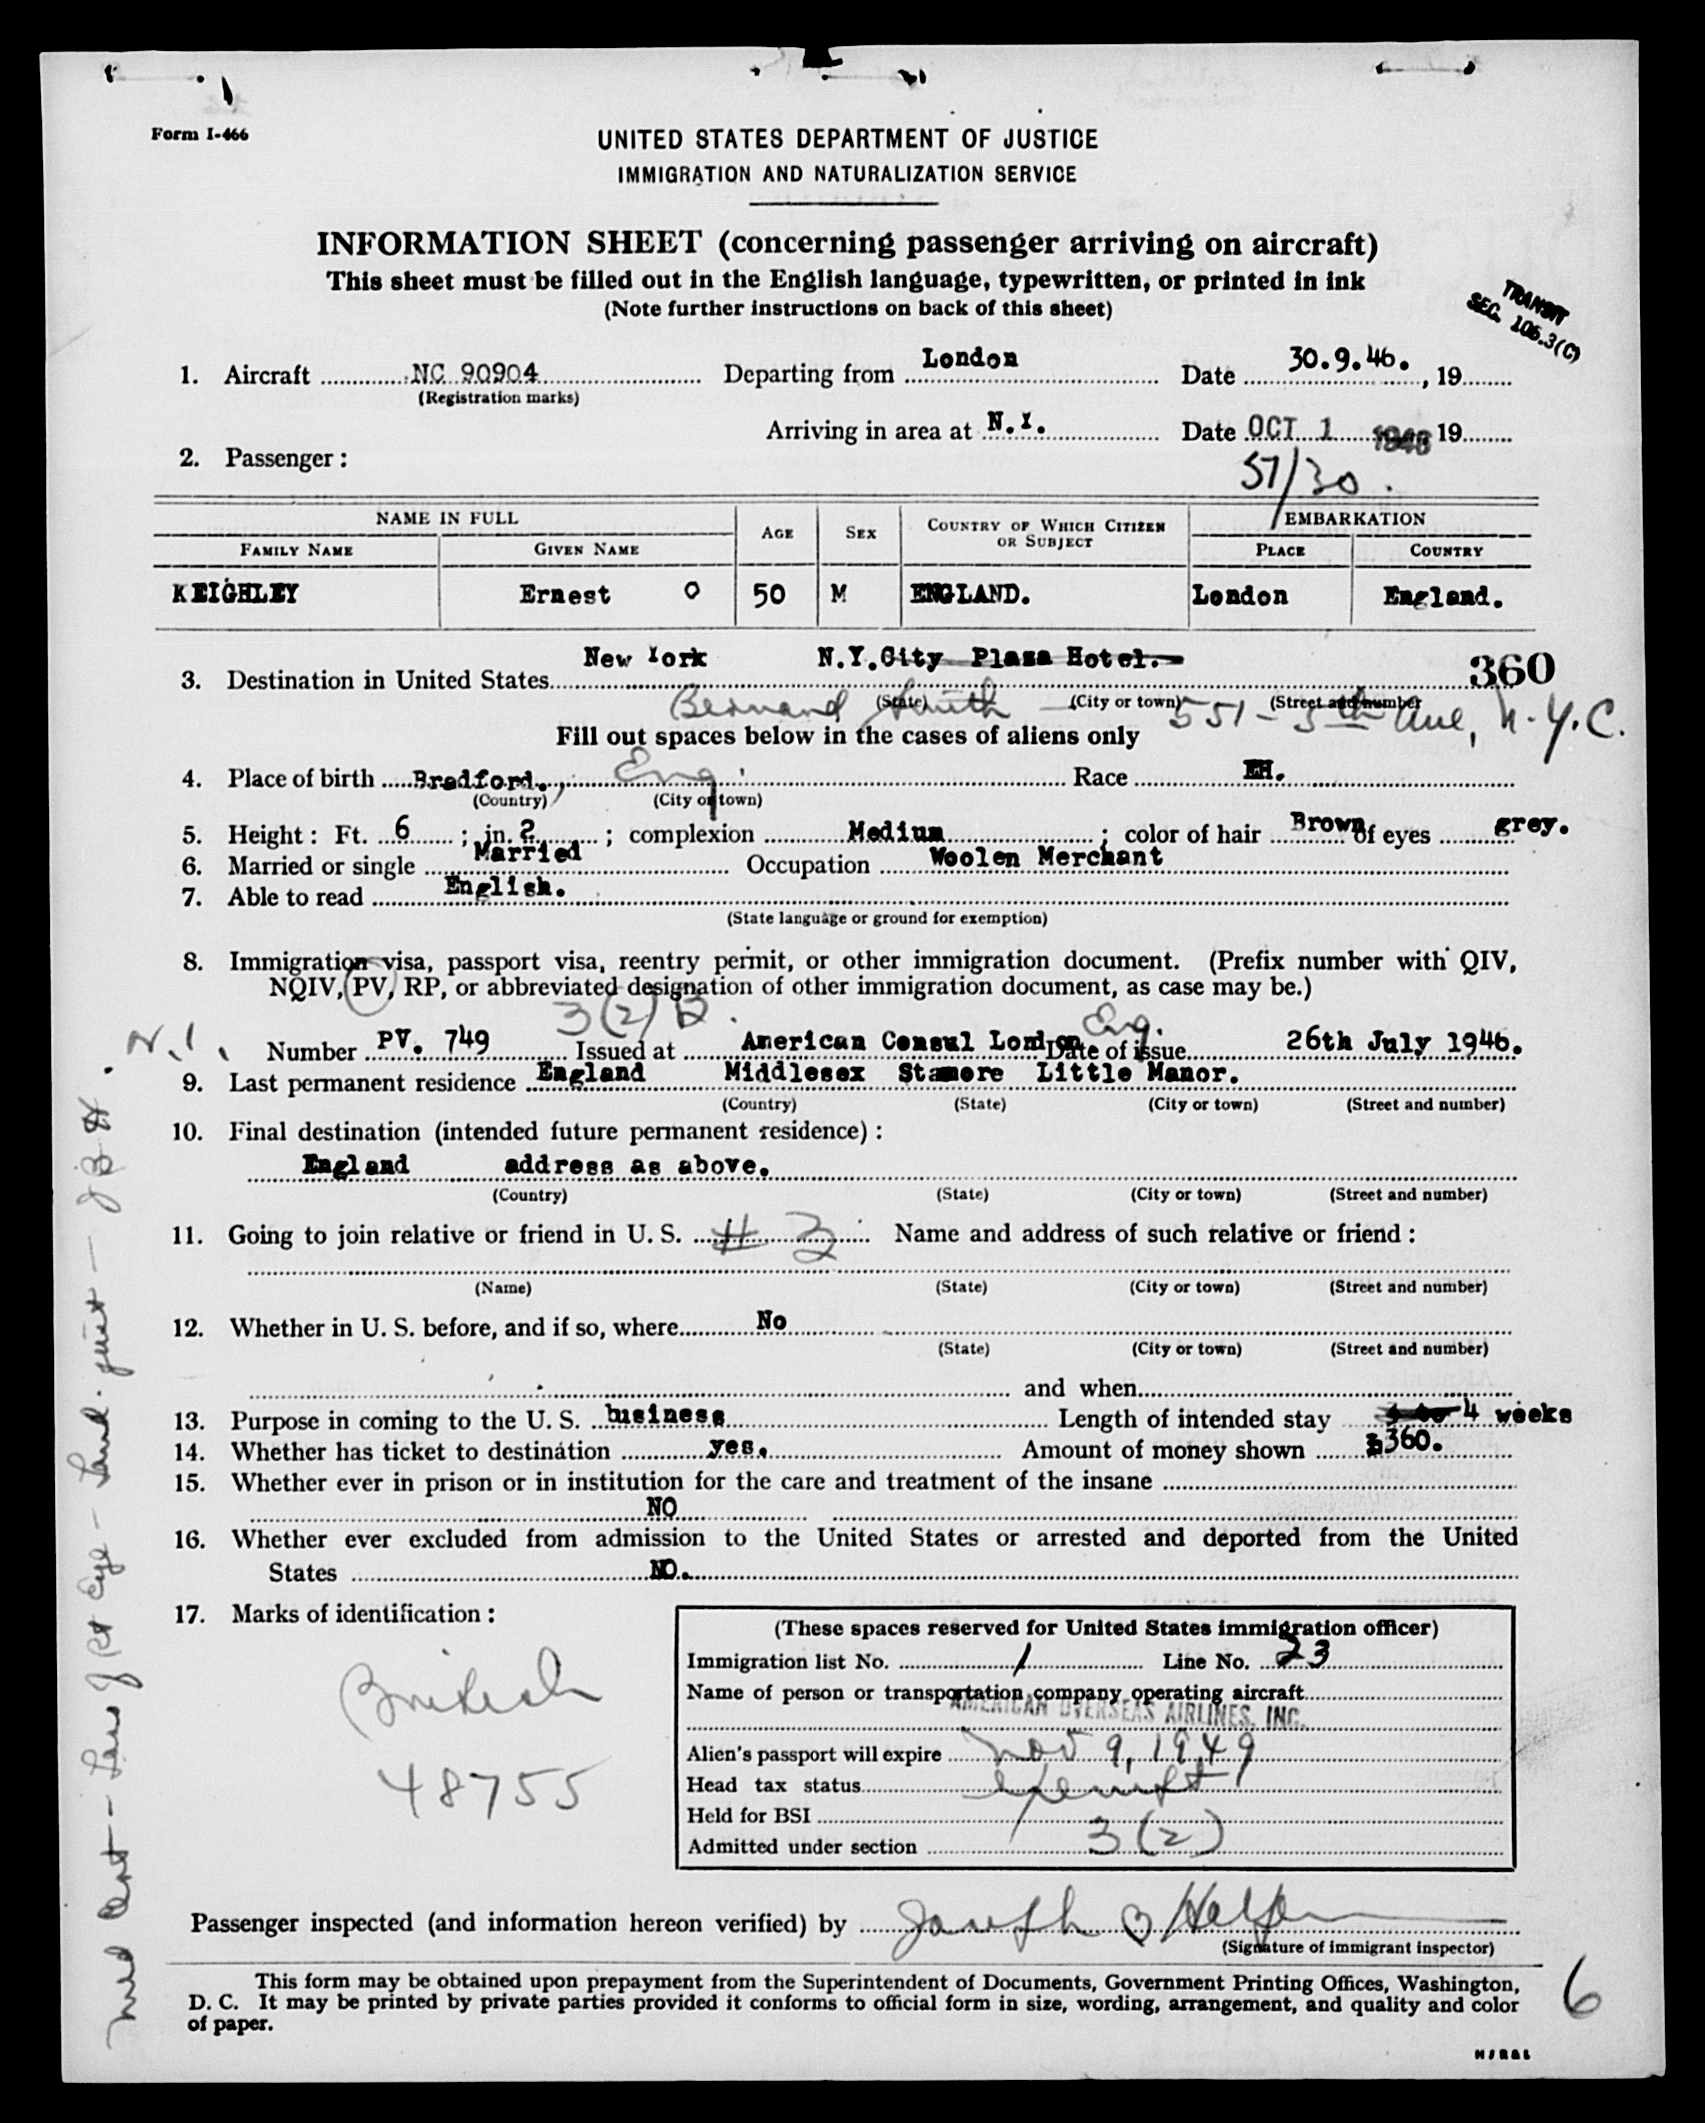 Form I-466
UNITED STATES DEPARTMENT OF JUSTICE
IMMIGRATION AND NATURALIZATION SERVICE
INFORMATION SHEET (concerning passenger arriving on aircraft)
This sheet must be filled out in the English language, typewritten, or printed in ink
(Note further instructions on back of this sheet)
TRANSIT
SEC. 106.3(C)
1. Aircraft NC 90904 Departing from London Date 30.9.46. , 19
(Registration marks)
Arriving in area at N.Y. Date OCT 1 1946 19
2. Passenger :
57/30.
NAME IN FULL AGE SEX COUNTRY OF WHICH CITIZEN OR SUBJECT EMBARKATION
FAMILY NAME GIVEN NAME PLACE COUNTRY
KEIGHLEY Ernest O 50 M ENGLAND. London England.
New York N.Y.City Plaza Hotel.-
360
3. Destination in United States
(State) (City or town) (Street and number)
Bernard Smith - 551 - 5th Ave, N.Y.C.
Fill out spaces below in the cases of aliens only
4. Place of birth Bradford., Eng. Race EH.
(Country) (City or town)
5. Height : Ft. 6 ; in. 2 ; complexion Medium ; color of hair Brown of eyes grey.
6. Married or single Married Occupation Woolen Merchant
7. Able to read English.
(State language or ground for exemption)
8. Immigration visa, passport visa, reentry permit, or other immigration document. (Prefix number with QIV,
NQIV, PV, RP, or abbreviated designation of other immigration document, as case may be.)
3(2) B.
Number PV. 749 Issued at American Consul London Eng. Date of issue 26th July 1946.
9. Last permanent residence England Middlesex Stamore Little Manor.
(Country) (State) (City or town) (Street and number)
10. Final destination (intended future permanent residence) :
England address as above.
(Country) (State) (City or town) (Street and number)
11. Going to join relative or friend in U. S. # 3 Name and address of such relative or friend :
(Name) (State) (City or town) (Street and number)
12. Whether in U. S. before, and if so, where No
(State) (City or town) (Street and number)
and when
13. Purpose in coming to the U. S. business Length of intended stay 4 weeks
14. Whether has ticket to destination yes. Amount of money shown $360.
15. Whether ever in prison or in institution for the care and treatment of the insane
NO
16. Whether ever excluded from admission to the United States or arrested and deported from the United
States NO.
17. Marks of identification :
British
48755
(These spaces reserved for United States immigration officer)
Immigration list No. 1 Line No. 23
Name of person or transportation company operating aircraft
AMERICAN OVERSEAS AIRLINES, INC.
Alien's passport will expire Nov 9, 1949
Head tax status exempt
Held for BSI
Admitted under section 3(2)
Passenger inspected (and information hereon verified) by Joseph B Halpern
(Signature of immigrant inspector)
This form may be obtained upon prepayment from the Superintendent of Documents, Government Printing Offices, Washington,
D. C. It may be printed by private parties provided it conforms to official form in size, wording, arrangement, and quality and color
of paper.
6